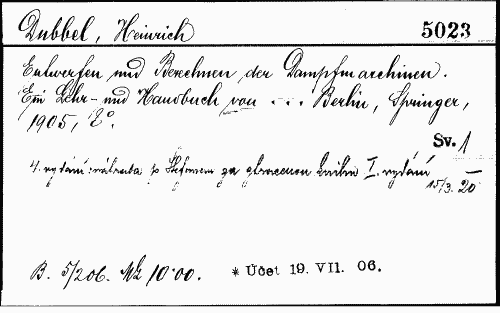 Dubbel, Heinrich 5023
Entwerfen und Berechnen der Dampfmaschinen.
Ein Lehr- und Handbuch von ... Berlin, Springer,
1905, 8°.
Sv. 1
4. vydání: náhrada p. za ztracenou knihu I. vydání
15/3. 20
B. 5/206. Mk 10·00. * Účet 19. VII. 06.